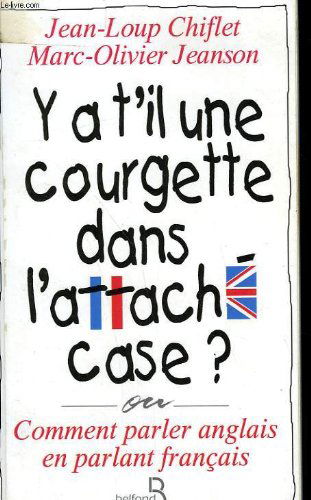 Le-livre.com
Jean-Loup Chiflet
Marc-Olivier Jeanson
Y a t'il une
courgette
dans
l'attaché
case ?
ou
Comment parler anglais
en parlant français
belfond